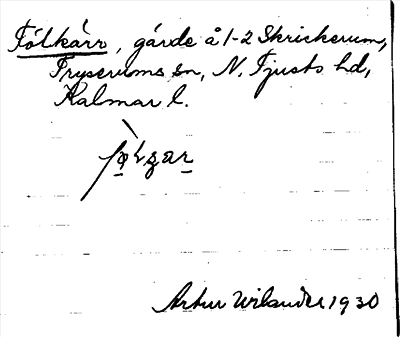 Fölkärr, gärde å 1-2 Skrickerum,
Fryserums sn, N. Tjusts hd,
Kalmar l.
Artur Wilander 1930